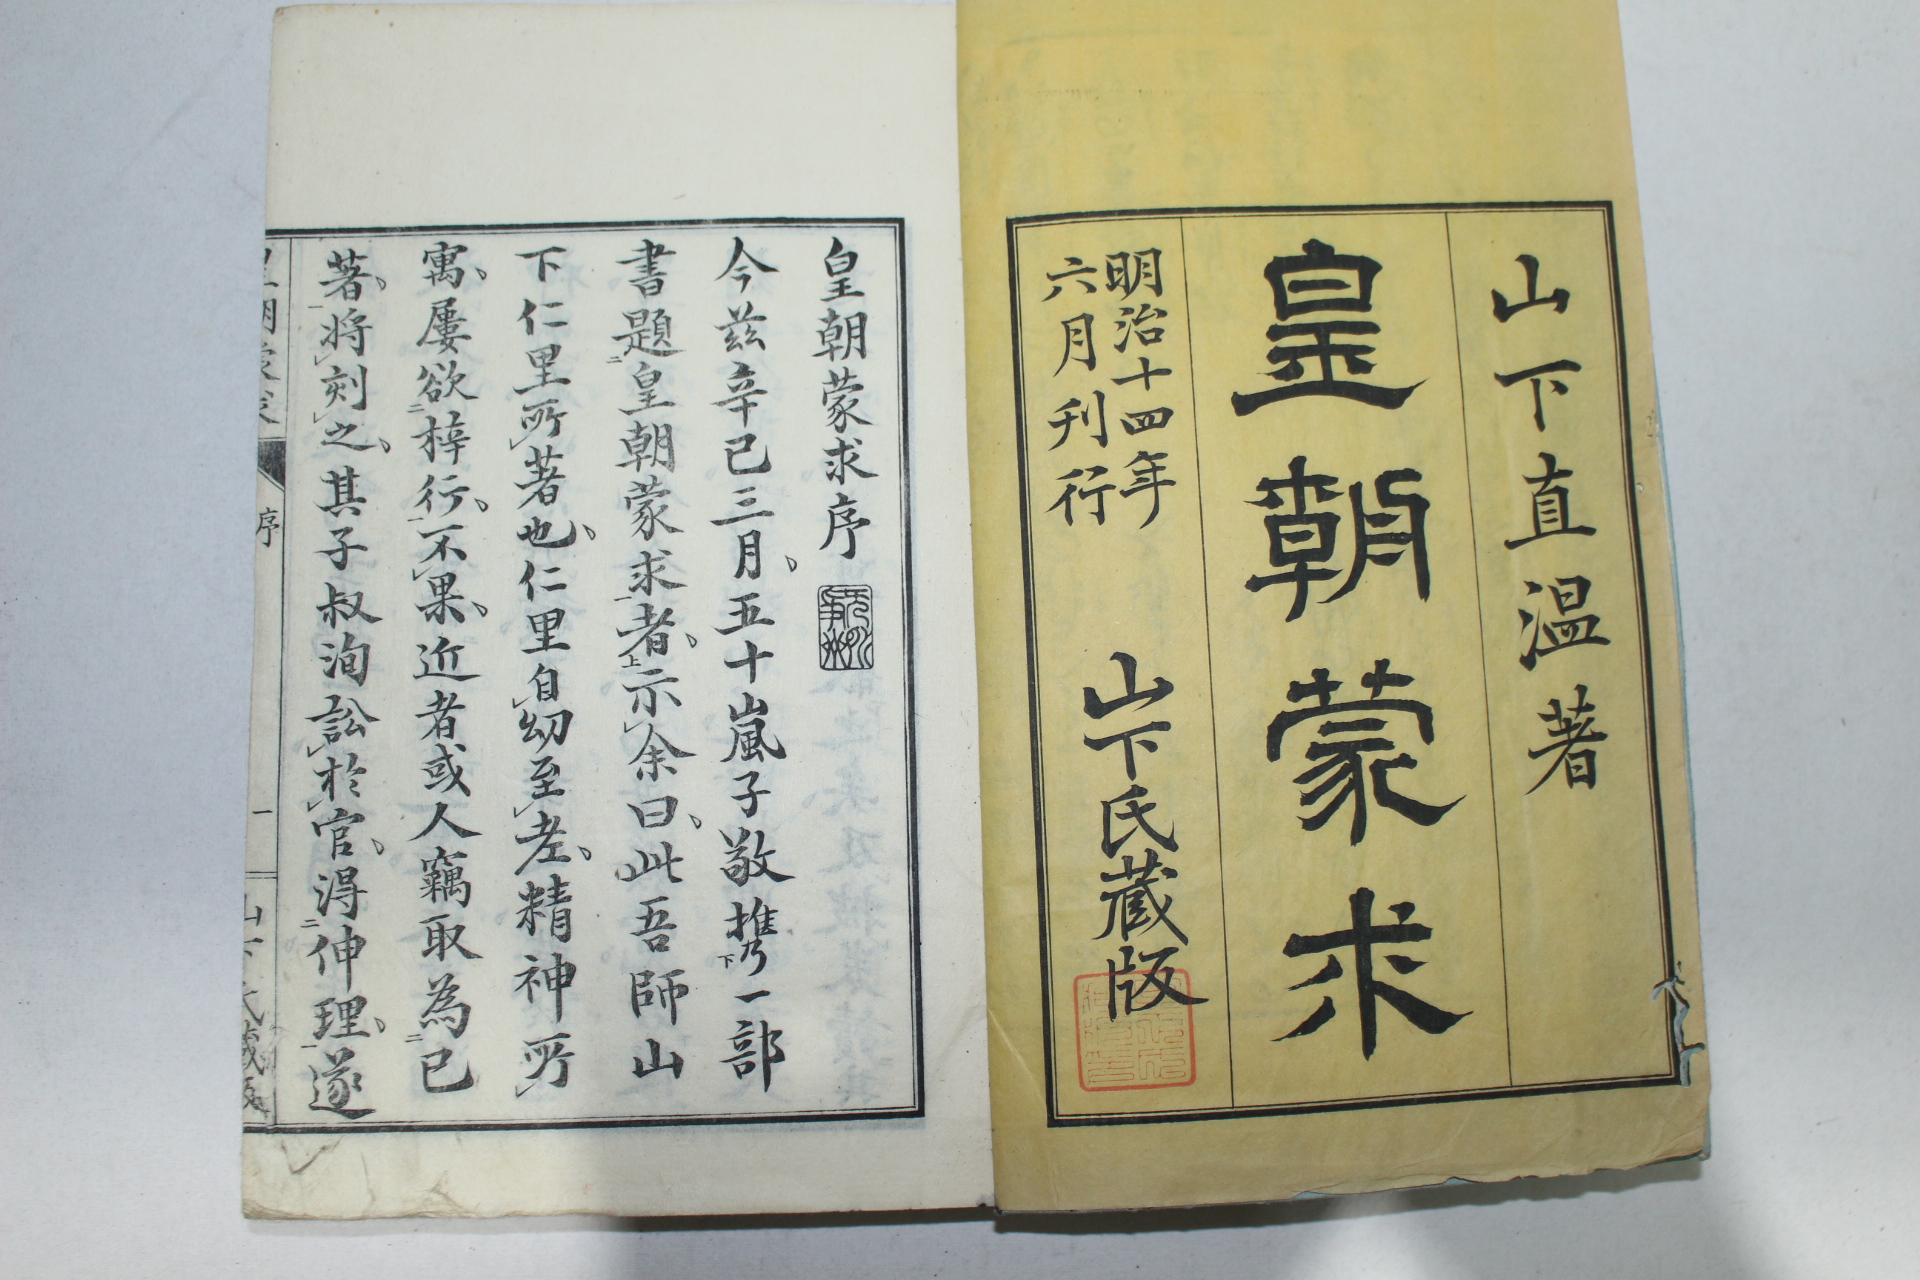 山下直温著
皇朝蒙求
明治十四年
六月刊行
山下氏蔵版
皇朝蒙求序
今茲辛已三月五十嵐子敬携一部
書題皇朝蒙求者示余曰此吾師山
下仁里所著也仁里自幼至老精神所
寓屢欲梓行不果近者或人竊取為已
著将刻之其子叔洵訟於官得伸理遂
序
一